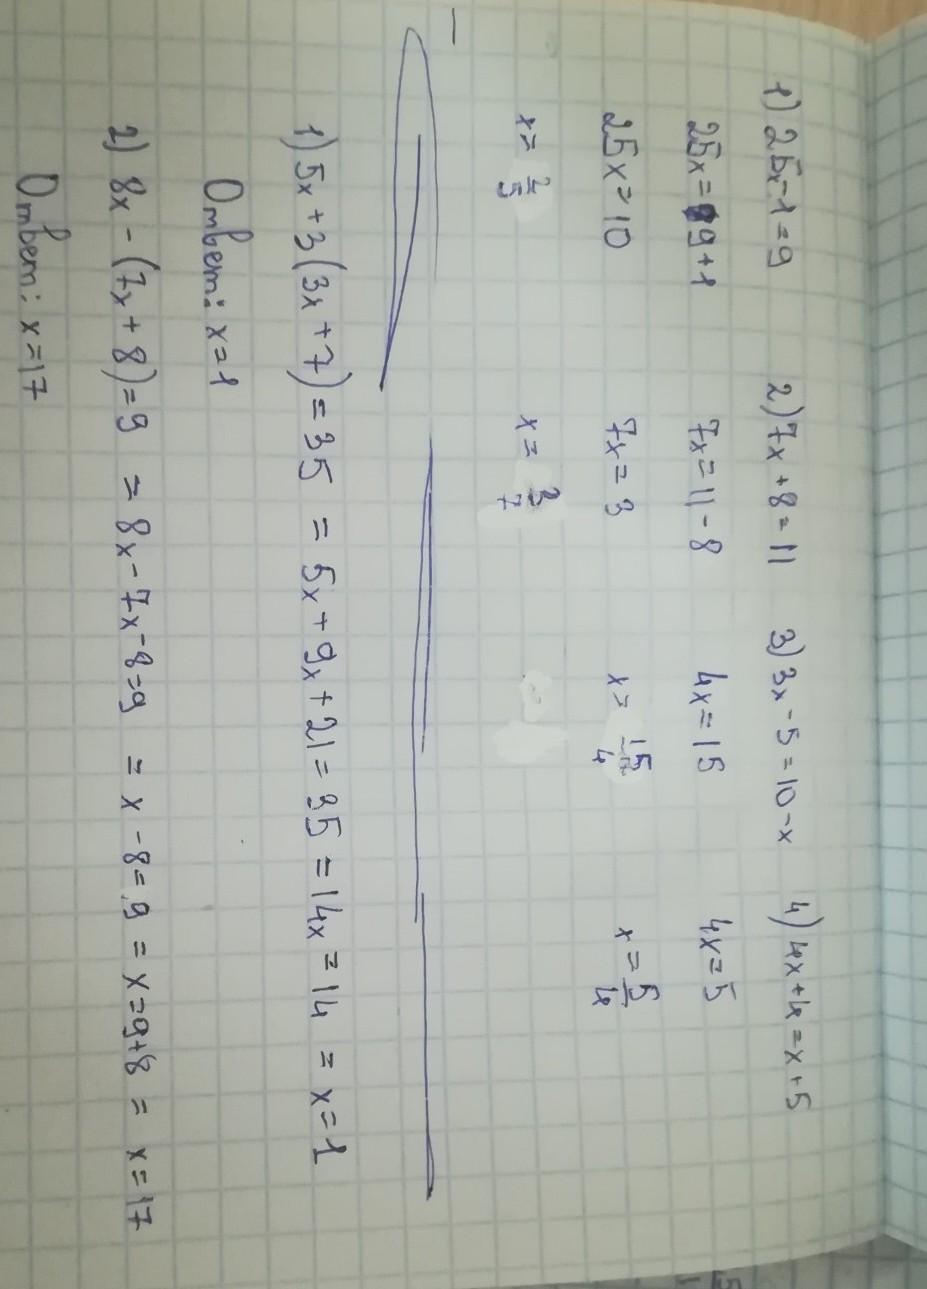 1) 25x-1=9 2) 7x+8=11 3) 3x-5=10-x 4) 4x+4=x+5
25x=9+1 7x=11-8 4x=15 4x=5
25x=10 7x=3 x=15/4 x=5/4
x=2/5 x=3/7
1) 5x+3(3x+7)=35 = 5x+9x+21=35 = 14x=14 = x=1
Ответ: x=1
2) 8x-(7x+8)=9 = 8x-7x-8=9 = x-8=9 = x=9+8 = x=17
Ответ: x=17